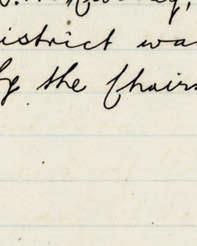 district wa
by the Chairs